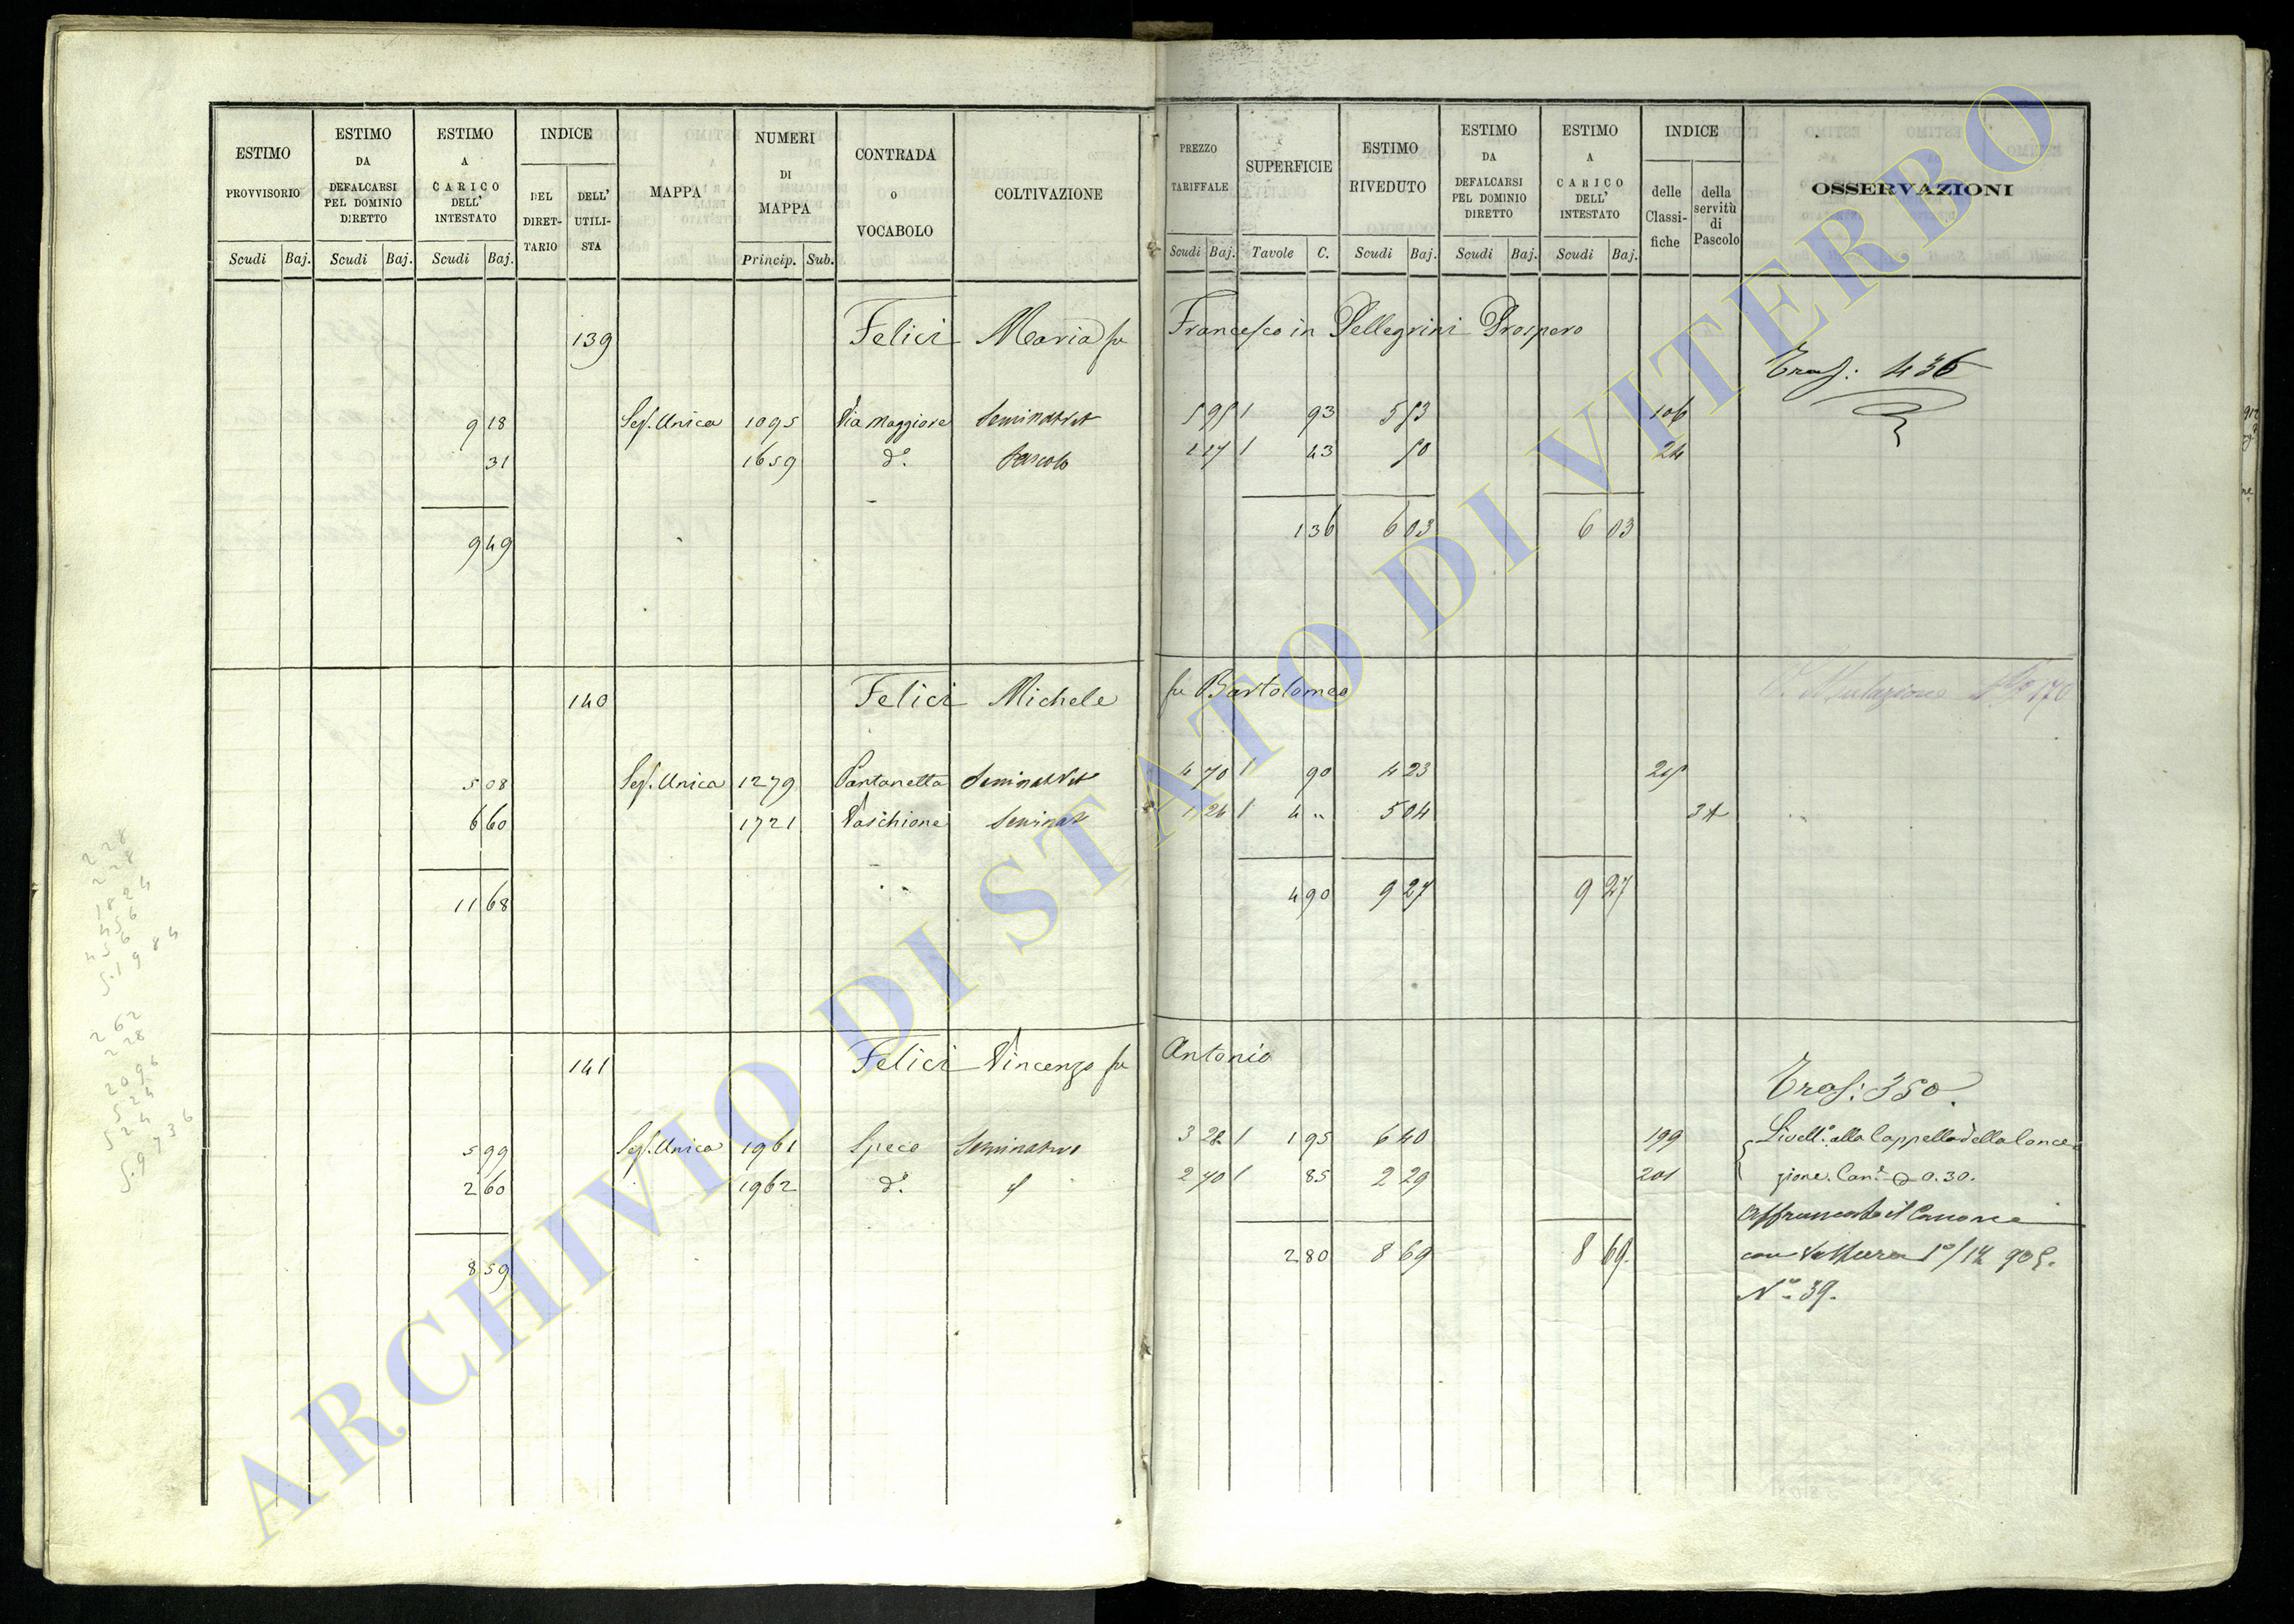 ESTIMO PROVVISORIO Scudi Baj.
ESTIMO DA DEFALCARSI PEL DOMINIO DIRETTO Scudi Baj.
ESTIMO A CARICO DELL' INTESTATO Scudi Baj.
INDICE DEL DIRET-TARIO DELL' UTILI-STA
MAPPA
NUMERI DI MAPPA Princip. Sub.
CONTRADA o VOCABOLO
COLTIVAZIONE
PREZZO TARIFFALE Scudi Baj.
SUPERFICIE Tavole C.
ESTIMO RIVEDUTO Scudi Baj.
ESTIMO DA DEFALCARSI PEL DOMINIO DIRETTO Scudi Baj.
ESTIMO A CARICO DELL' INTESTATO Scudi Baj.
INDICE delle Classi-fiche della servitù di Pascolo
OSSERVAZIONI
139 Felici Maria fu Francesco in Pellegrini Prospero
Trasf: 436
9 18 Sez. Unica 1095 Via Maggiore Seminat Vit 93 106
31 1659 d.° Pascolo 43 24
9 49 1 36 6 03 6 03
140 Felici Michele fu Bartolomeo
Mutazione N° 170
5 08 Sez. Unica 1279 Pantanetta Seminat Vit 4 70 90 4 23
6 60 1721 Paschione Seminat 1 26 4 " 5 04
11 68 4 90 9 27 9 27
141 Felici Vincenzo fu Antonio
Trasf: 350.
5 99 Sez. Unica 1961 Speco Seminativo 3 28 1 95 6 40 199 Livell.° alla Cappella della Conce
2 60 1962 d.° 2 70 85 2 29 201 zione. Can.e 0.30.
Affrancato il Canone
8 59 2 80 8 69 8 69. con Voltura 1°/12 905.
N.° 39.
228
228
1824
456
456
5.1984
262
228
2096
524
524
5.9736
ARCHIVIO DI STATO DI VITERBO